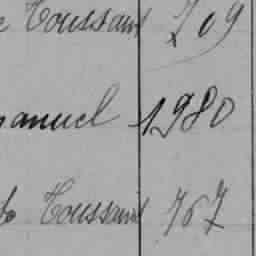 Toussaint 209
anuel 1980
Toussaint 767